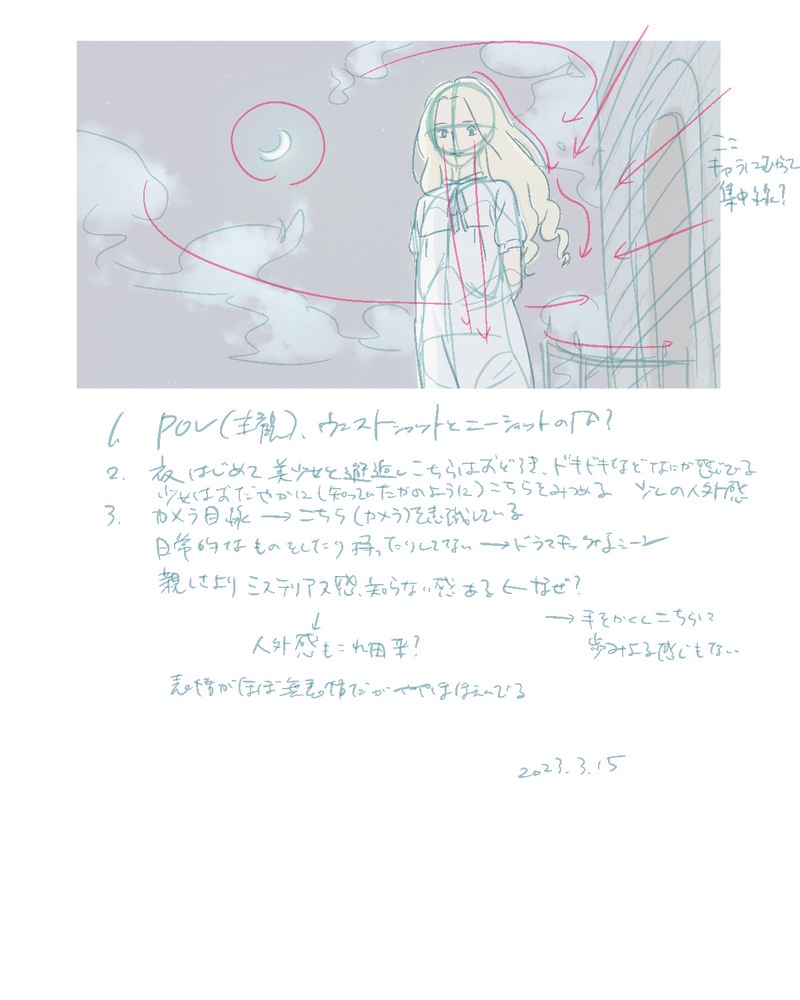 ここ
キャラにむかって
集中線?
1. POV(主観)、ウエストショットとニーショットの間?
2. 夜はじめて美少女と邂逅しこちらはおどろき、ドキドキなどなにか感じてる
少女はおだやかに(知っていたかのように)こちらをみつめる 少しの人外感
3. カメラ目線 → こちら(カメラ)を意識している
日常的なものをしたり持ったりしてない → ドラマチックなシーン
親しさよりミステリアス感、知らない感ある ← なぜ?
↓
人外感もこれ由来?
→ 手をかくしこちらに
歩みよる感じもない
表情がほぼ無表情だがややほほえんでる
2023.3.15